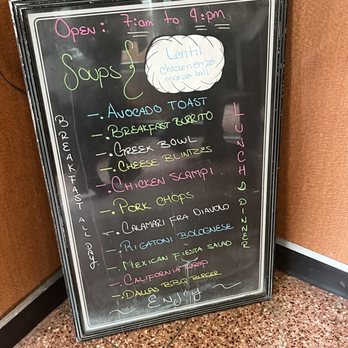 Open: 7:am to 9:pm
Soups
Lentil
chicken orzo
matzo ball
BREAKFAST ALL DAY
-. Avocado Toast
-. Breakfast Burrito
-. Greek Bowl
-. Cheese Blintzes
-. Chicken Scampi
-. Pork Chops
-. Calamari Fra Diavolo
-. Rigatoni Bolognese
-. Mexican Fiesta Salad
-. California Wrap
-. Dallas BBQ Burger
LUNCH & DINNER
Enjoy